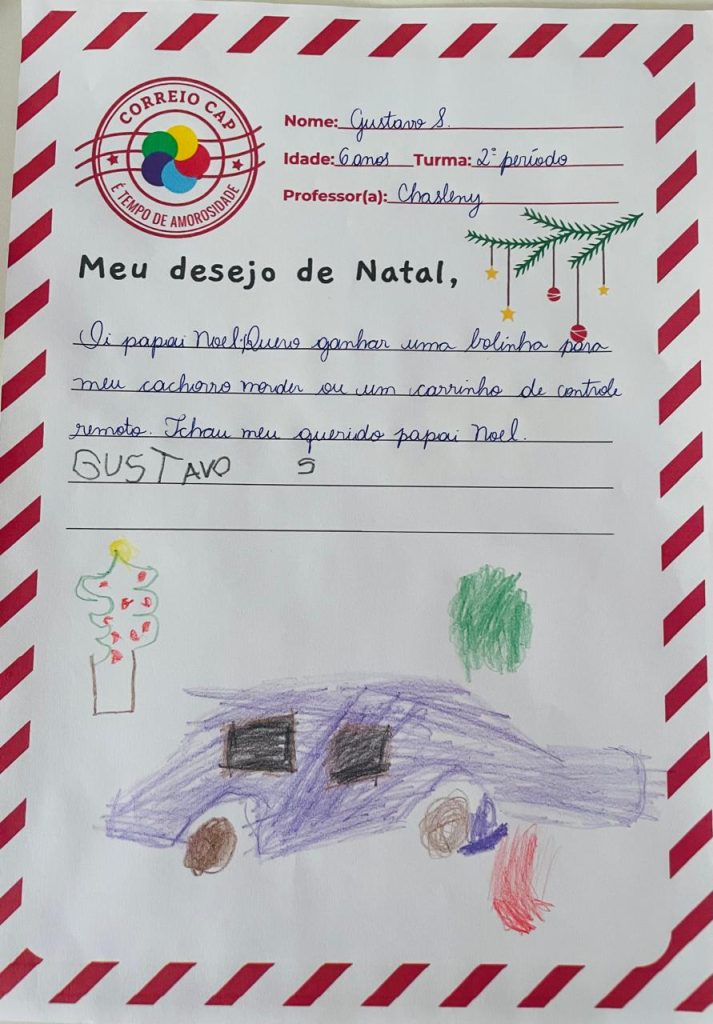 CORREIO CAP
É TEMPO DE AMOROSIDADE
Nome: Gustavo S.
Idade: 6 anos Turma: 2º período
Professor(a): Chasleny
Meu desejo de Natal,
Oi papai Noel. Quero ganhar uma bolinha para
meu cachorro morder ou um carrinho de controle
remoto. Tchau meu querido papai Noel.
GUSTAVO S